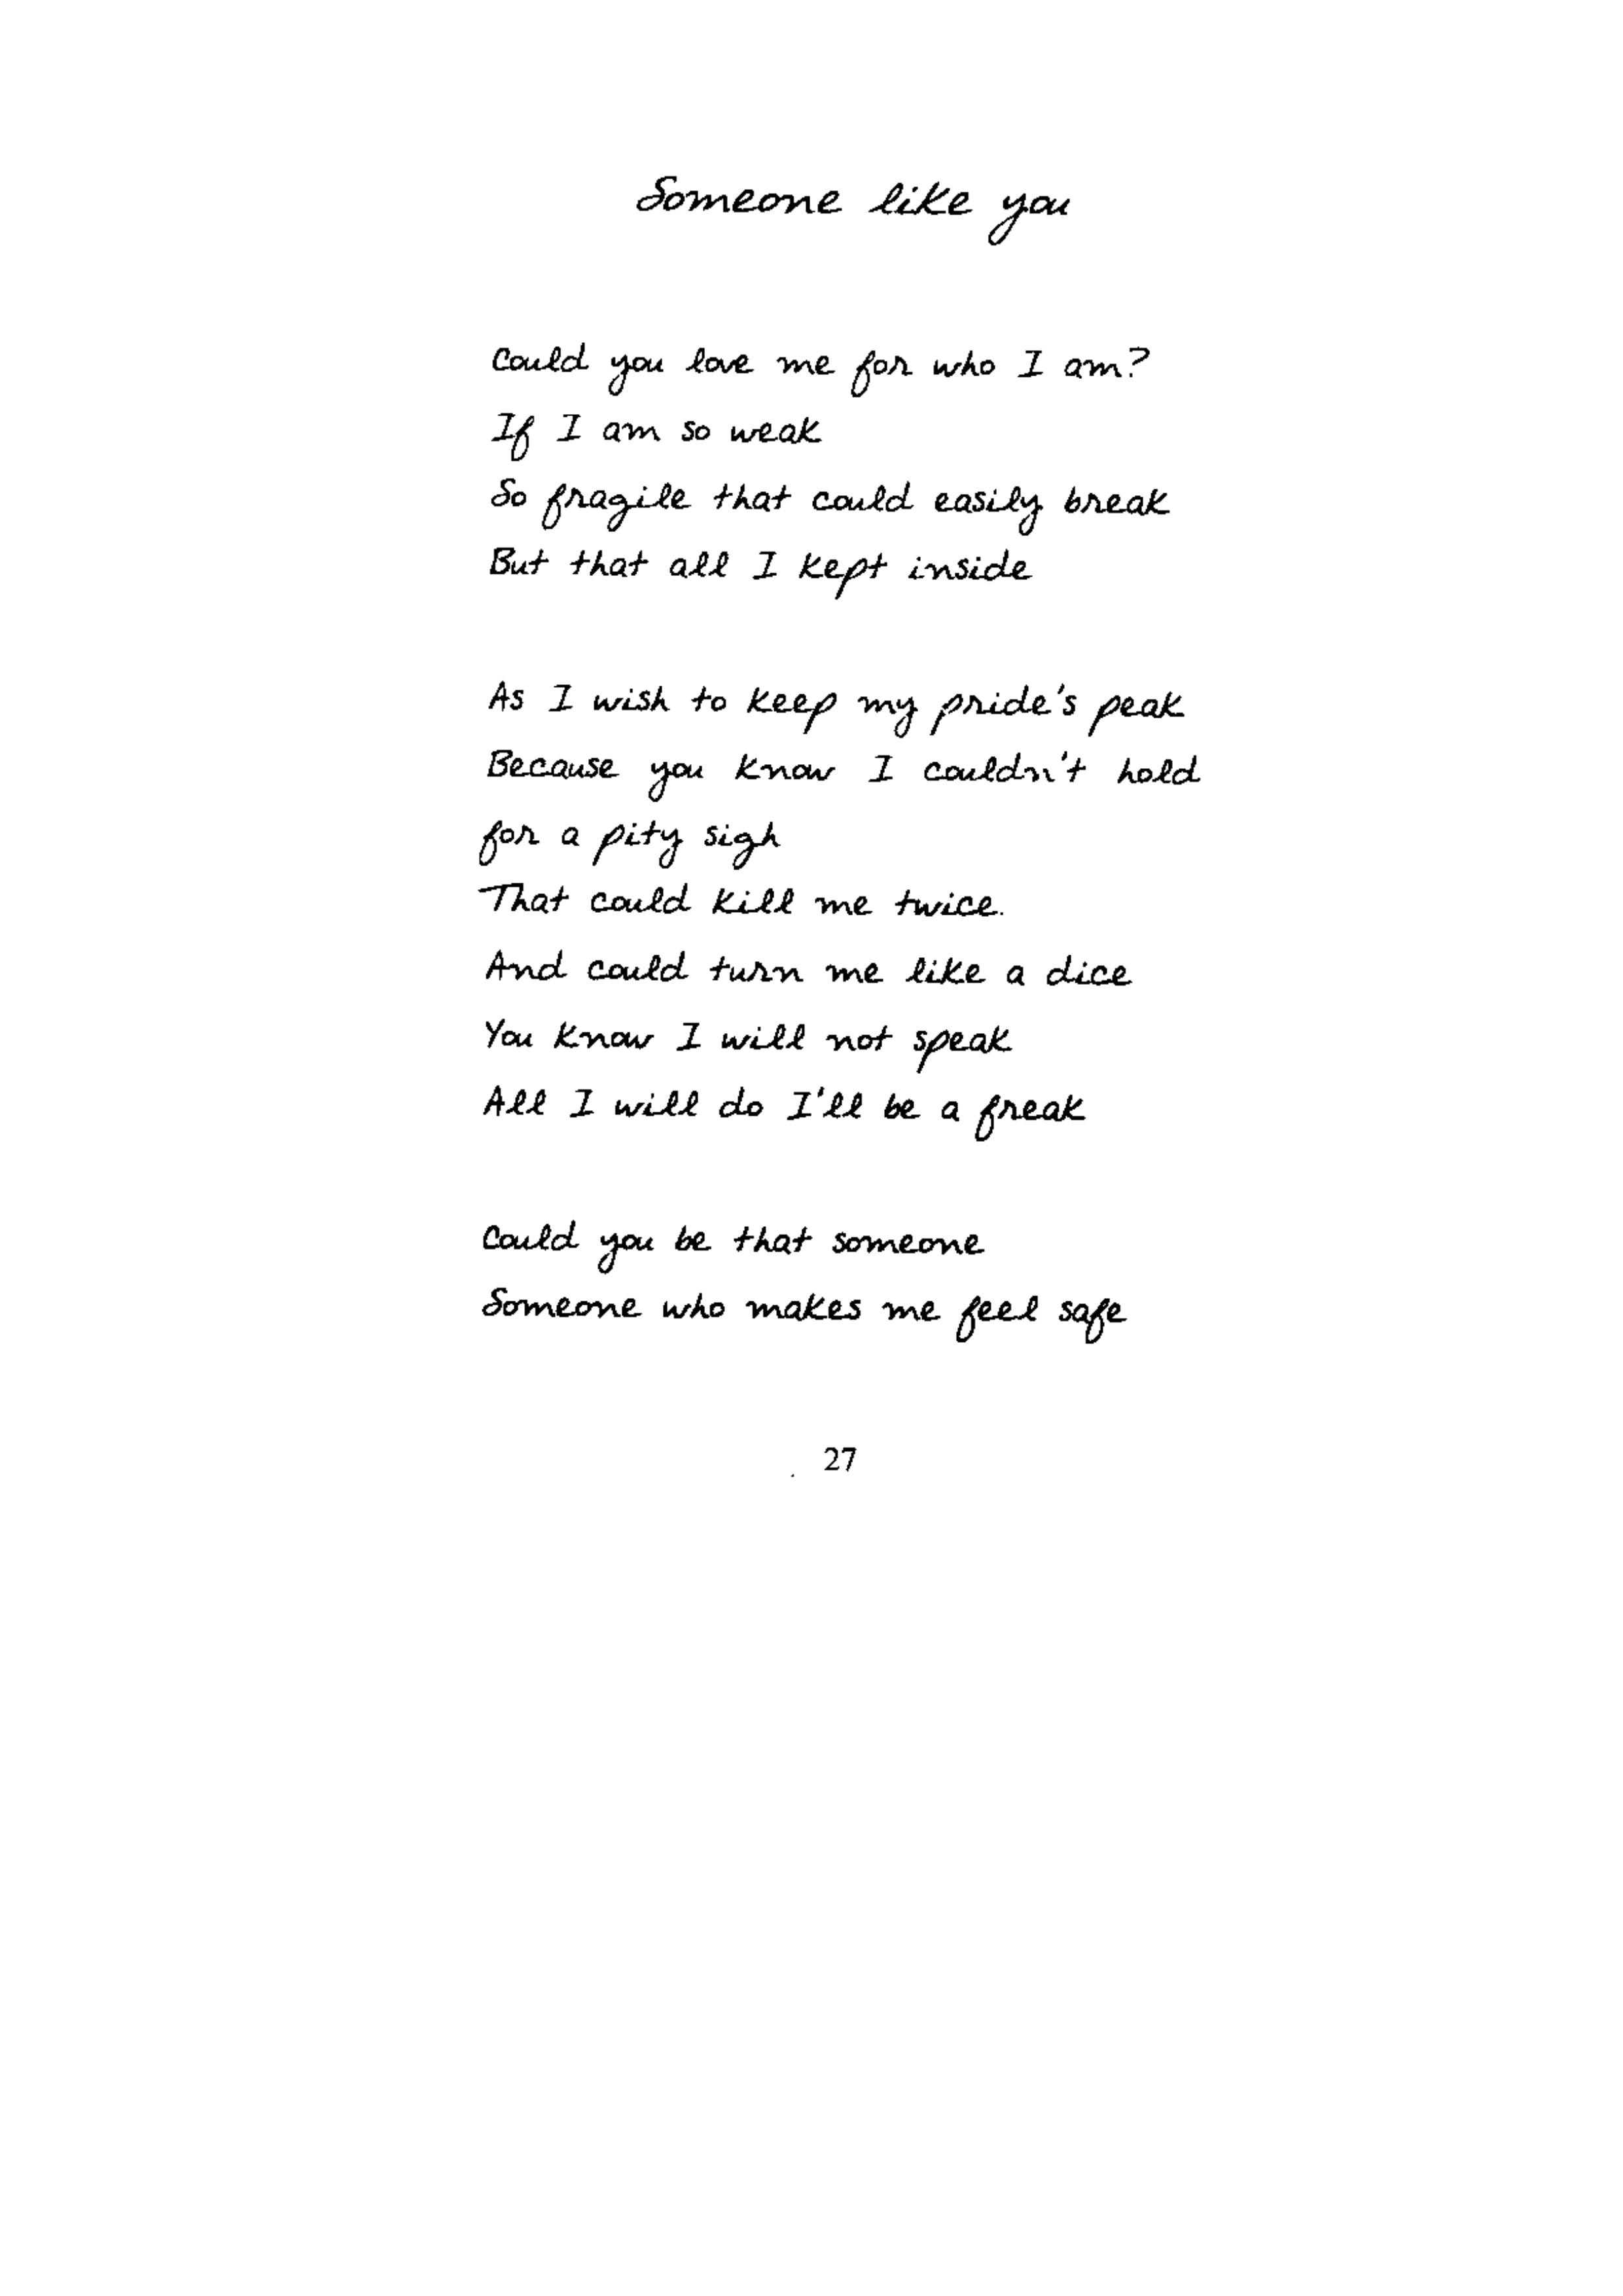 Someone like you
Could you love me for who I am?
If I am so weak
So fragile that could easily break
But that all I kept inside
As I wish to keep my pride's peak
Because you know I couldn't hold
for a pity sigh
That could kill me twice.
And could turn me like a dice
You know I will not speak
All I will do I'll be a freak
Could you be that someone
Someone who makes me feel safe
27